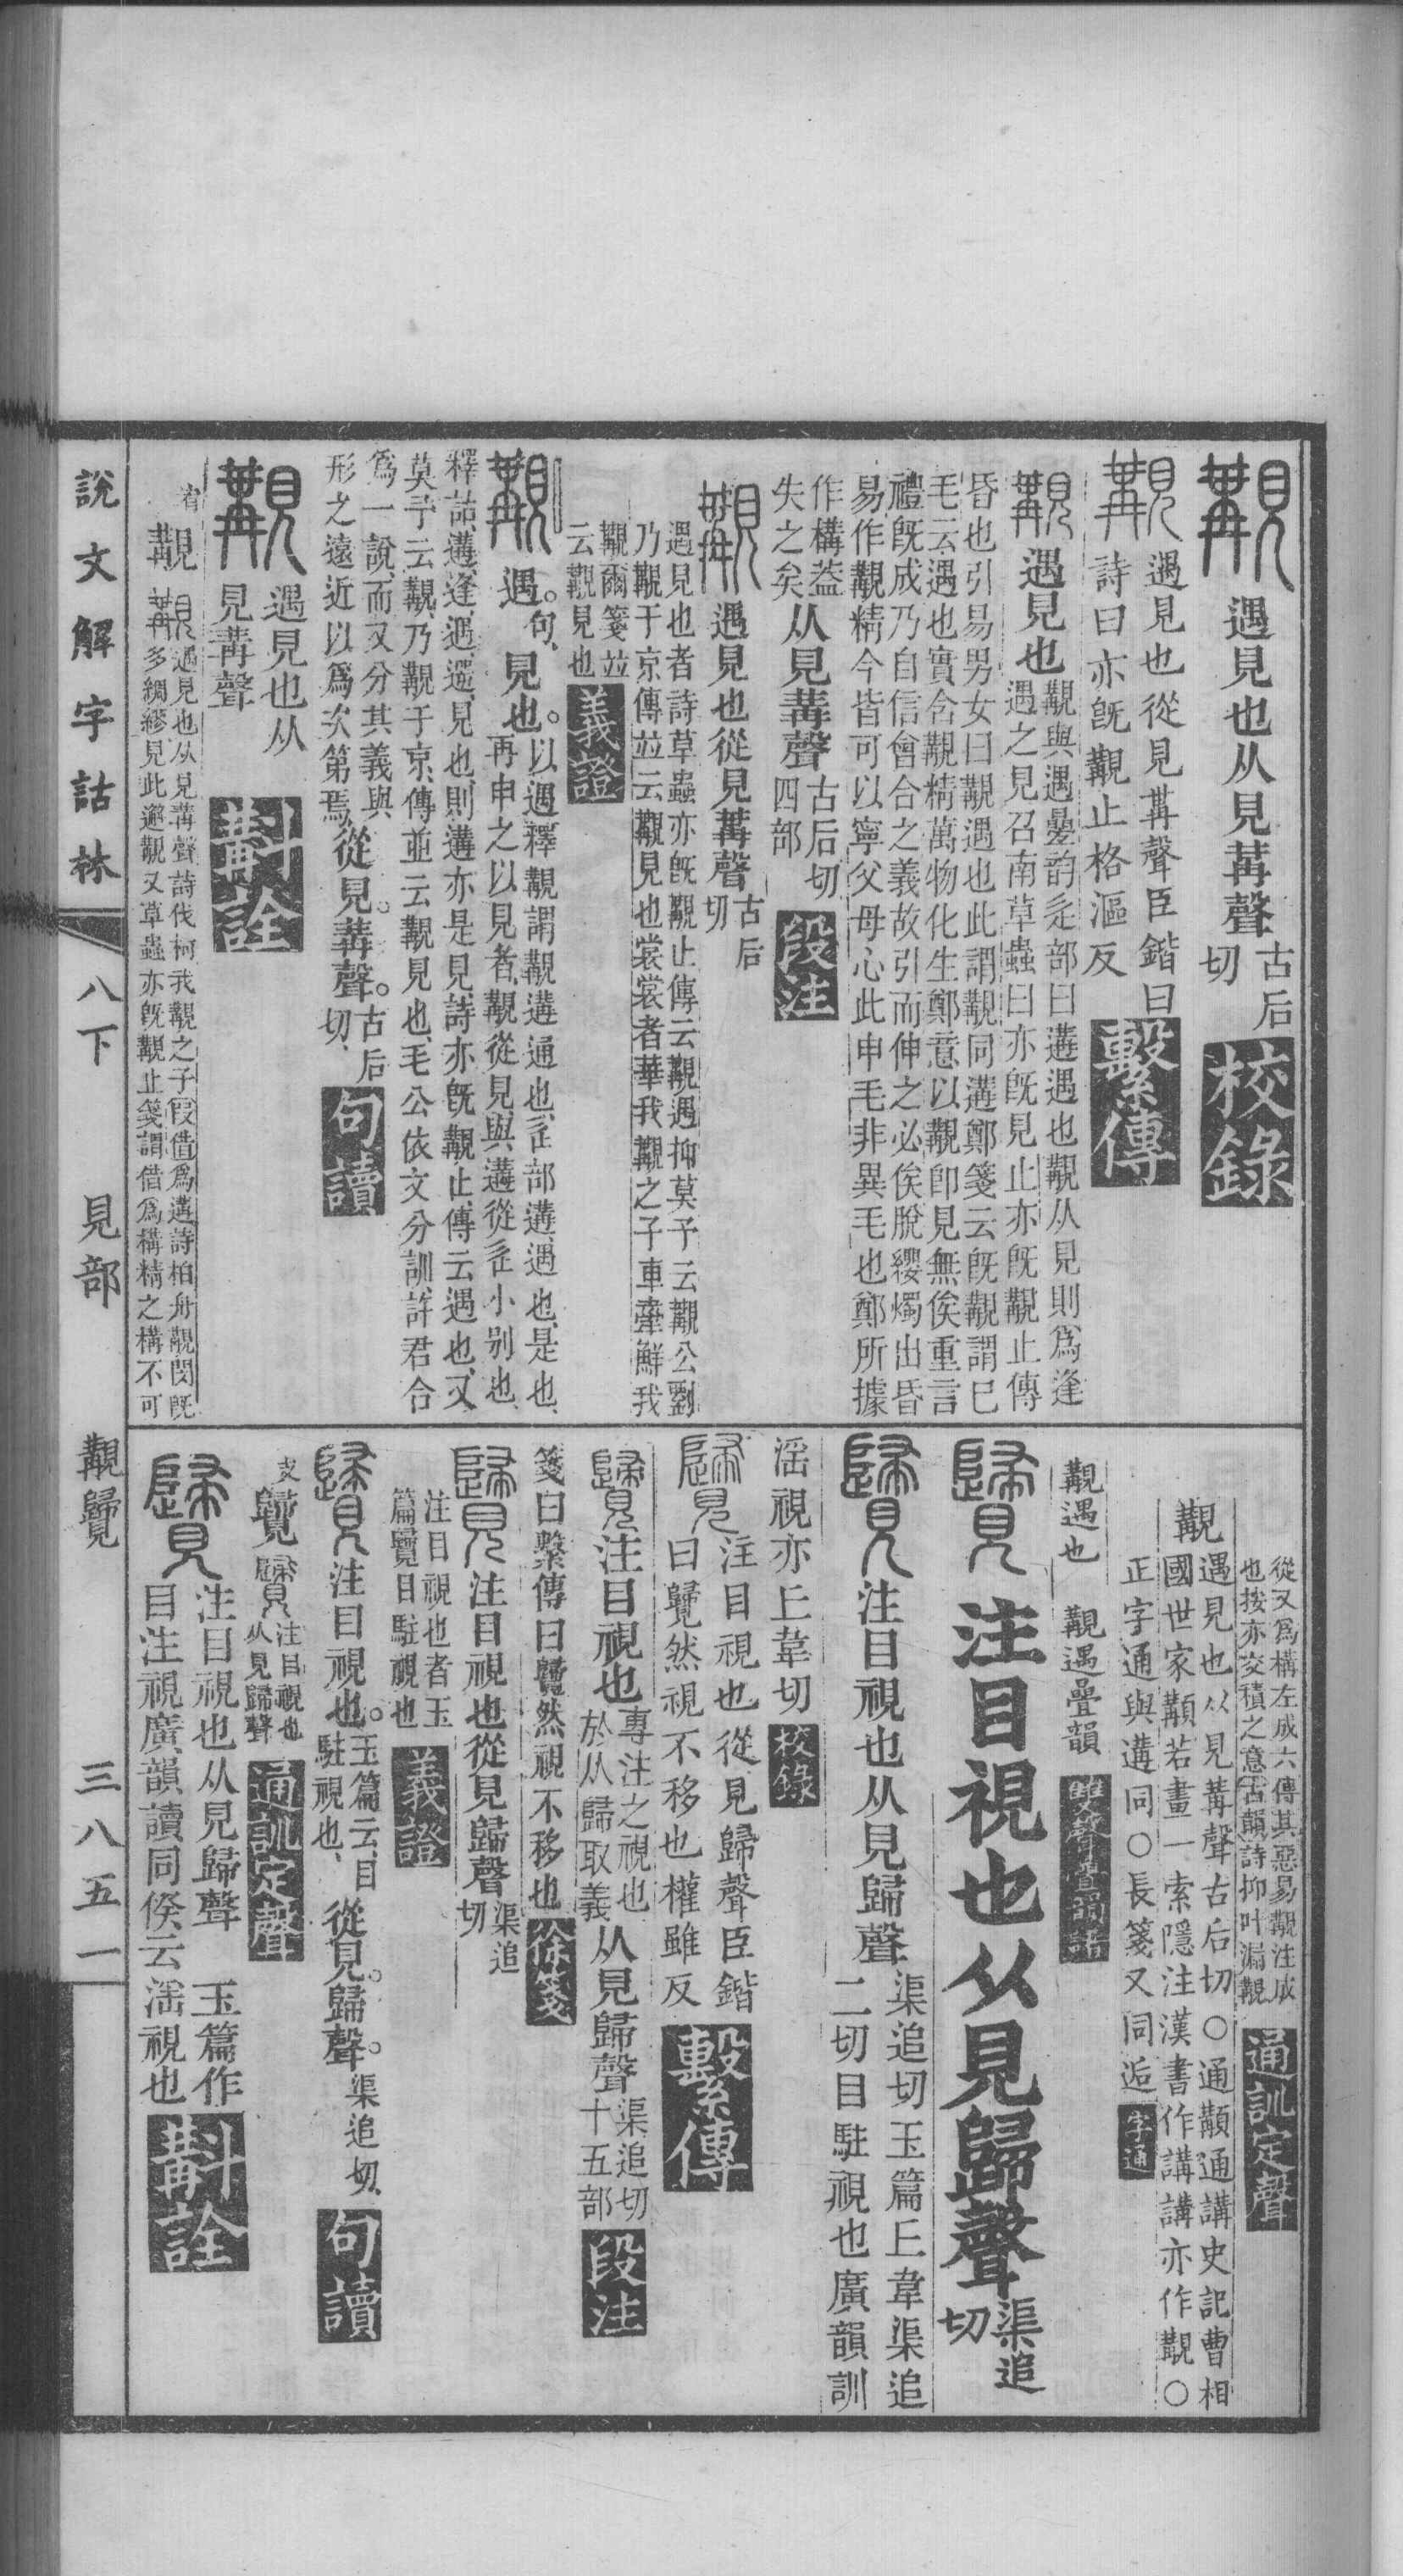 覯 遇見也从見冓聲 古后切 校錄
覯 遇見也從見冓聲臣鍇曰
詩曰亦旣覯止格漚反 繫傳
覯 遇見也 覯與遇曡韵辵部曰遘遇也覯从見則爲逢
遇之見召南草蟲曰亦旣見止亦旣覯止傳
毛云遇也實含覯精萬物化生鄭意以覯卽見無俟重言
昏也引易男女曰覯遇也此謂覯同遘鄭箋云旣覯謂已
禮旣成乃自信會合之義故引而伸之必俟脫纓燭出昏
易作覯精今皆可以寧父母心此申毛非異毛也鄭所據
作構葢
失之矣 从見冓聲 古后切四部 段注
覯 遇見也從見冓聲 古后切
遇見也者詩草蟲亦旣覯止傳云覯遇抑莫予云覯公劉
乃覯于京傳竝云覯見也裳裳者華我覯之子車舝鮮我
覯爾箋竝
云覯見也 義證
覯 遇。句、見也。以遇釋覯謂覯遘通也、辵部遘、遇也、是也、
再申之以見者、覯從見與遘從辵小别也、
釋詁、遘、逢、遇、遻、見也、則遘亦是見、詩亦旣覯止、傳云遇也、又
莫予云覯、乃覯于京、傳並云覯見也、毛公依文分訓、許君合
爲一說、而又分其義與
形之遠近以爲次第焉、從見。冓聲。古后切、 句讀
覯 遇見也从
見冓聲 斠詮
覯 遇見也从見冓聲詩伐柯我覯之子叚借爲遘詩柏舟覯閔旣
多綢繆見此邂覯又草蟲亦旣覯止箋謂借爲構精之構不可
從又爲構左成六傳其惡易覯注成
也按亦交積之意古韻詩抑叶漏覯 通訓定聲
覯 遇見也从見冓聲古后切○通顜通講史記曹相
國世家顜若畫一索隱注漢書作講講亦作覯○
正字通與遘同○長箋又同逅 字通
覯遇也 覯遇疊韻 雙聲疊韻譜
䙡 注目視也从見歸聲 渠追切
䙡 注目視也从見歸聲 渠追切玉篇丘韋渠追
二切目駐視也廣韻訓
滛視亦丘韋切 校錄
䙡 注目視也從見歸聲臣鍇
曰䙡然視不移也權雖反 繫傳
䙡 注目視也 專注之視也
於从歸取義 从見歸聲 渠追切十五部 段注
箋曰繫傳曰䙡然視不移也 徐箋
䙡 注目視也從見歸聲 渠追切
注目視也者玉
篇䙡目駐視也 義證
䙡 注目視也。玉篇云、目駐視也、從見。歸聲。渠追切、 句讀
䙡 注目視也
从見歸聲 通訓定聲
䙡 注目視也从見歸聲 玉篇作
目注視廣韻讀同傒云滛視也 斠詮
說文解字詁林 八下 見部 覯䙡 三八五一